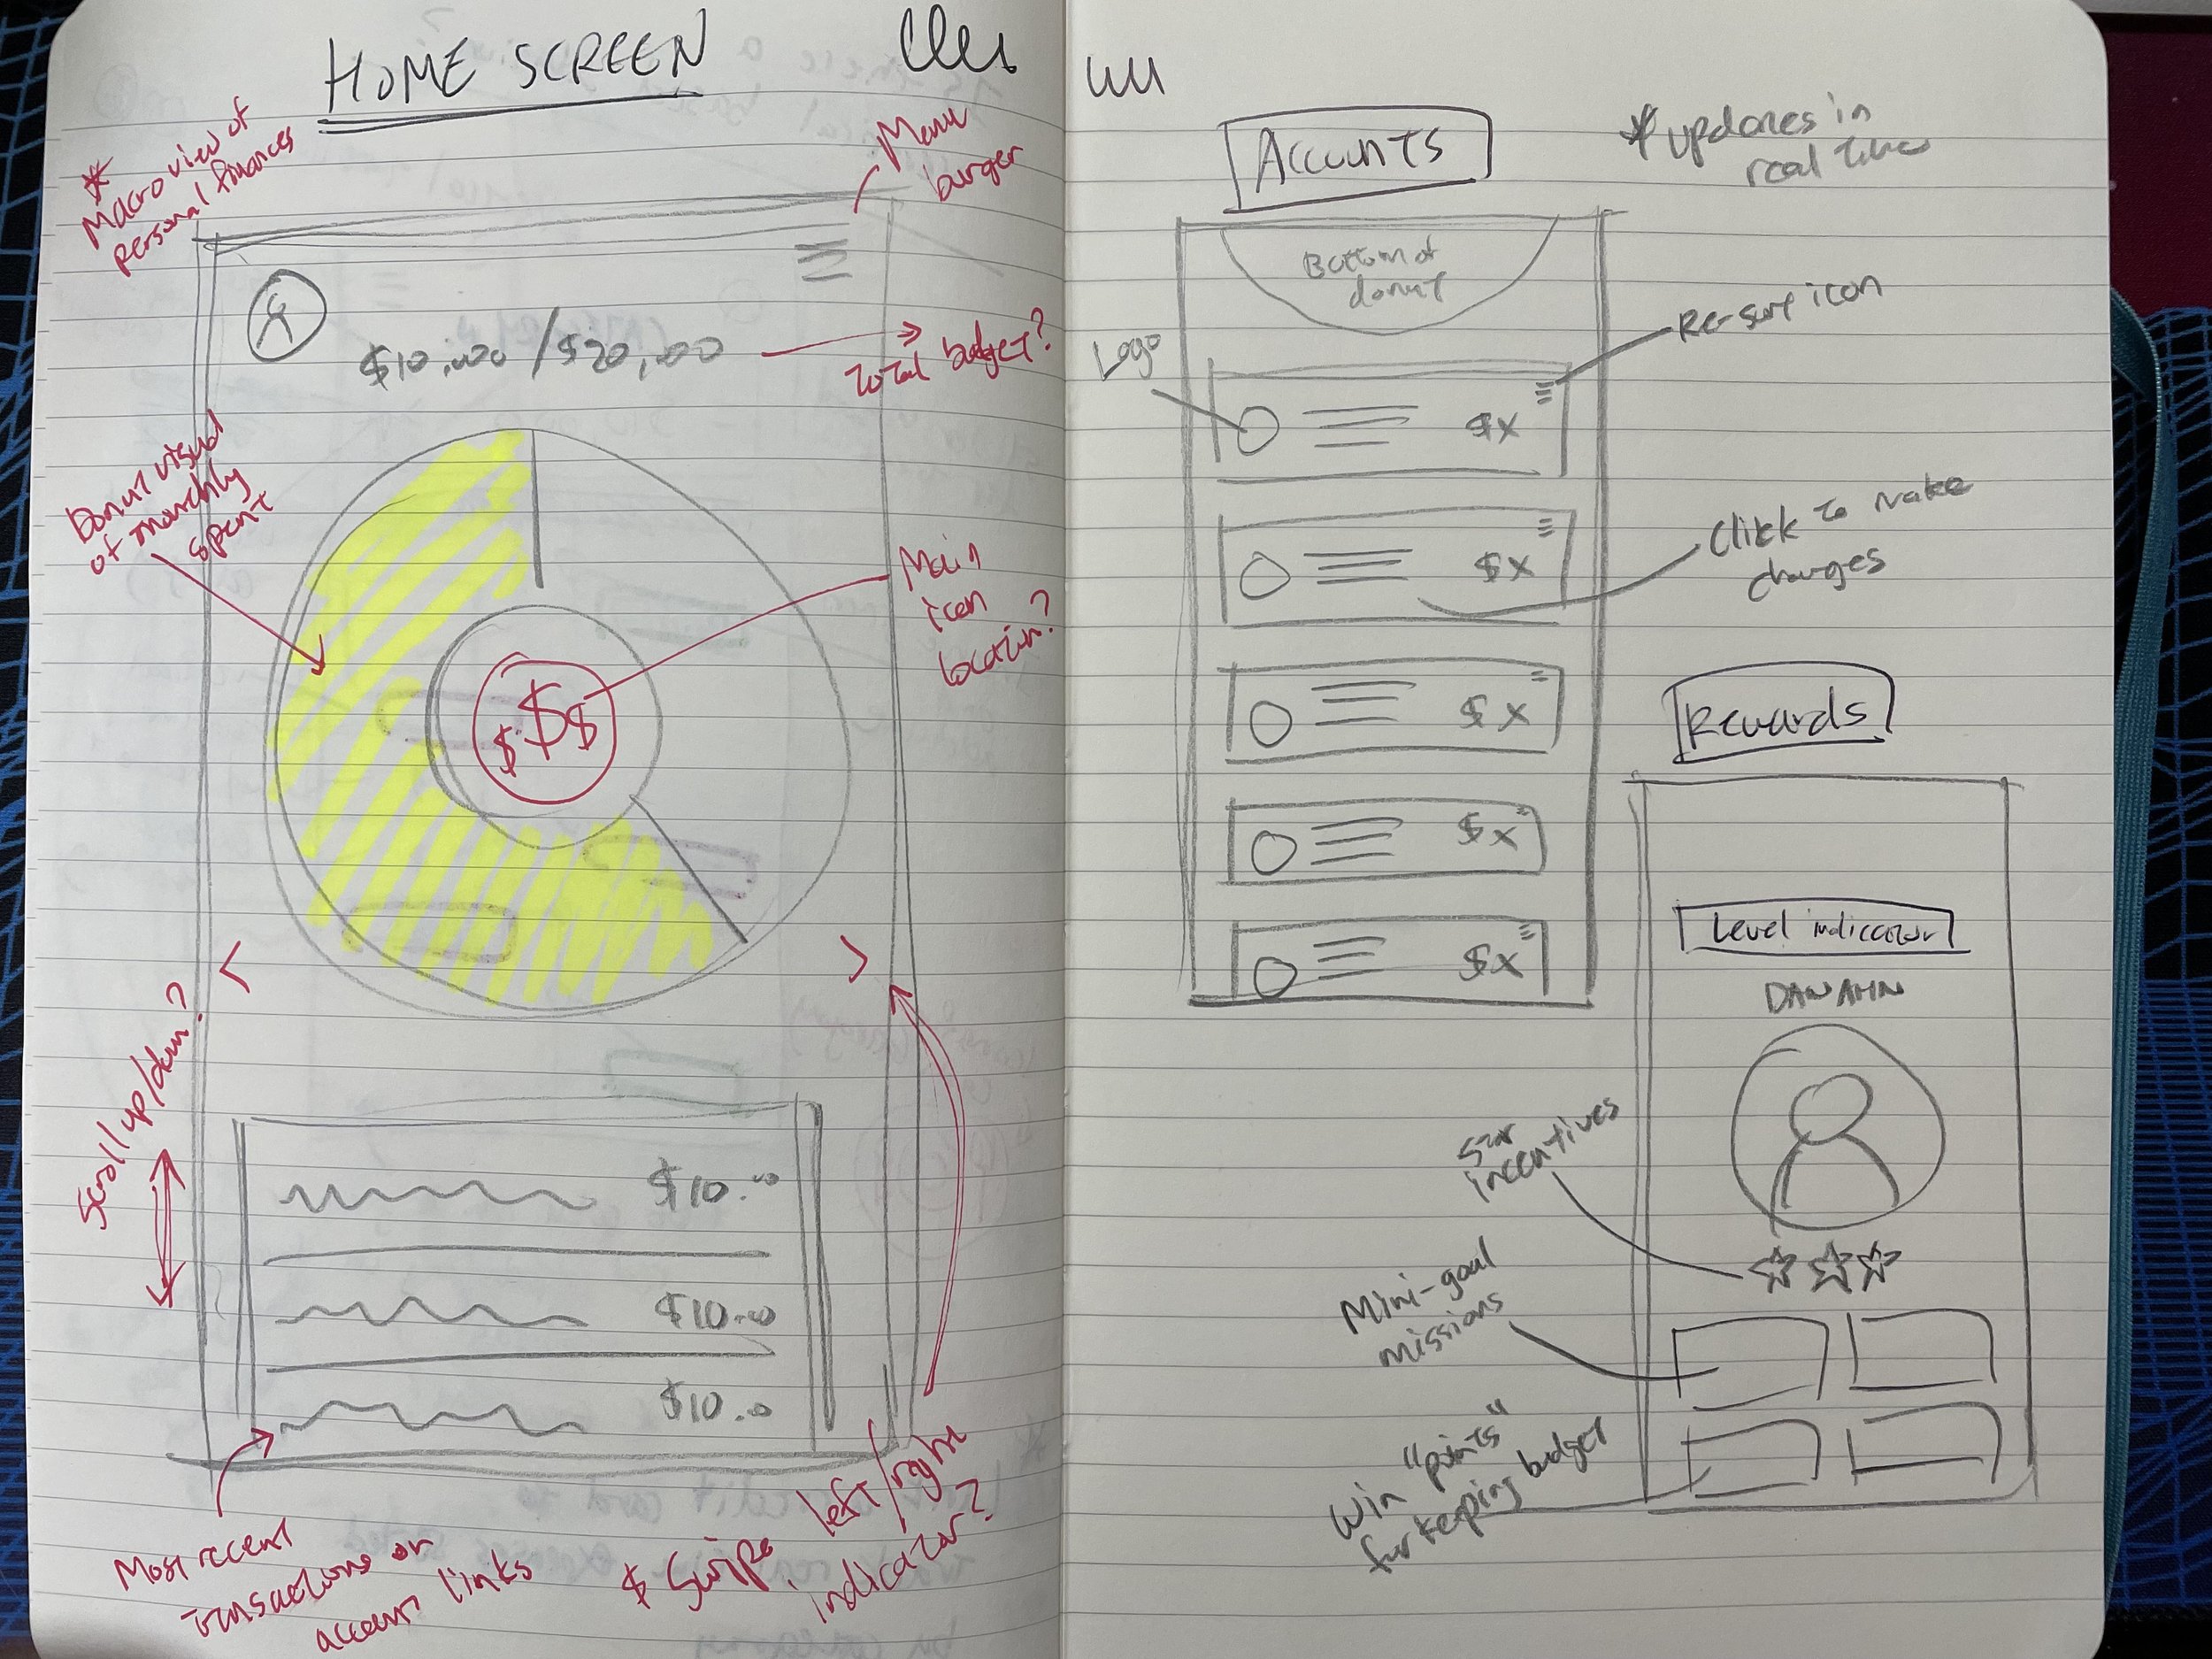 HOME SCREEN
*
Macro view of
personal finances
Menu
burger
$10,000 / $20,000
Total budget?
Donut visual
of monthly
spent
Main
icon
location?
$ $ $
<
>
Scroll up/down?
$10.00
$10.00
$10.00
Most recent
transactions or
account links
$ Swipe left/right
indicator?
Accounts
* updates in
real time
Bottom of
donut
Logo
Re-sort icon
$x
$x
$x
$x
$x
Click to make
changes
Rewards
Level indicator
DAN AHN
Star
incentives
Mini-goal
missions
Win "points"
for keeping budget